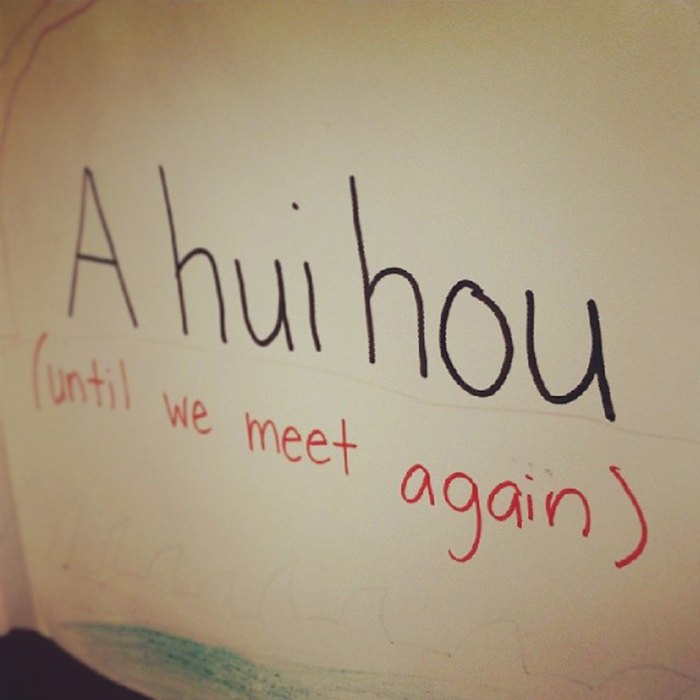 A hui hou
(until we meet again)